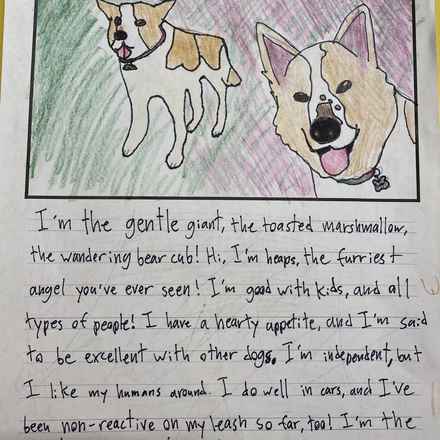 I'm the gentle giant, the toasted marshmallow,
the wandering bear cub! Hi, I'm heaps, the furriest
angel you've ever seen! I'm good with kids, and all
types of people! I have a hearty appetite, and I'm said
to be excellent with other dogs. I'm independent, but
I like my humans around. I do well in cars, and I've
been non-reactive on my leash so far, too! I'm the